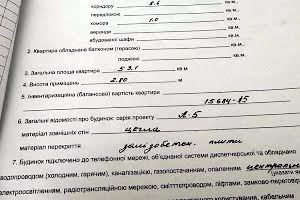 коридору 8.6 кв.м,
передпокою кв.м,
комора 1.0 кв.м,
веранди кв.м,
вбудованої шафи кв.м.
2. Квартира обладнана балконом (терасою) кв.м,
лоджією кв.м.
3. Загальна площа квартири 53.1 кв.м.
4. Висота приміщень 2.80 м.
5. Інвентаризаційна (балансова) вартість квартири
15684-85
6. Загальні відомості про будинок: серія проекту А-5
матеріал зовнішніх стін цегла
матеріал перекриття залізобетон. плити
7. Будинок підключено до телефонної мережі, об'єднаної системи диспетчерської та обладнано
водопроводом (холодним, гарячим), каналізацією, газопостачанням, опаленням центральн
електроосвітленням, радіотрансляційною мережею, сміттєпроводом, ліфтами, замково-переговор
користування, кабельним